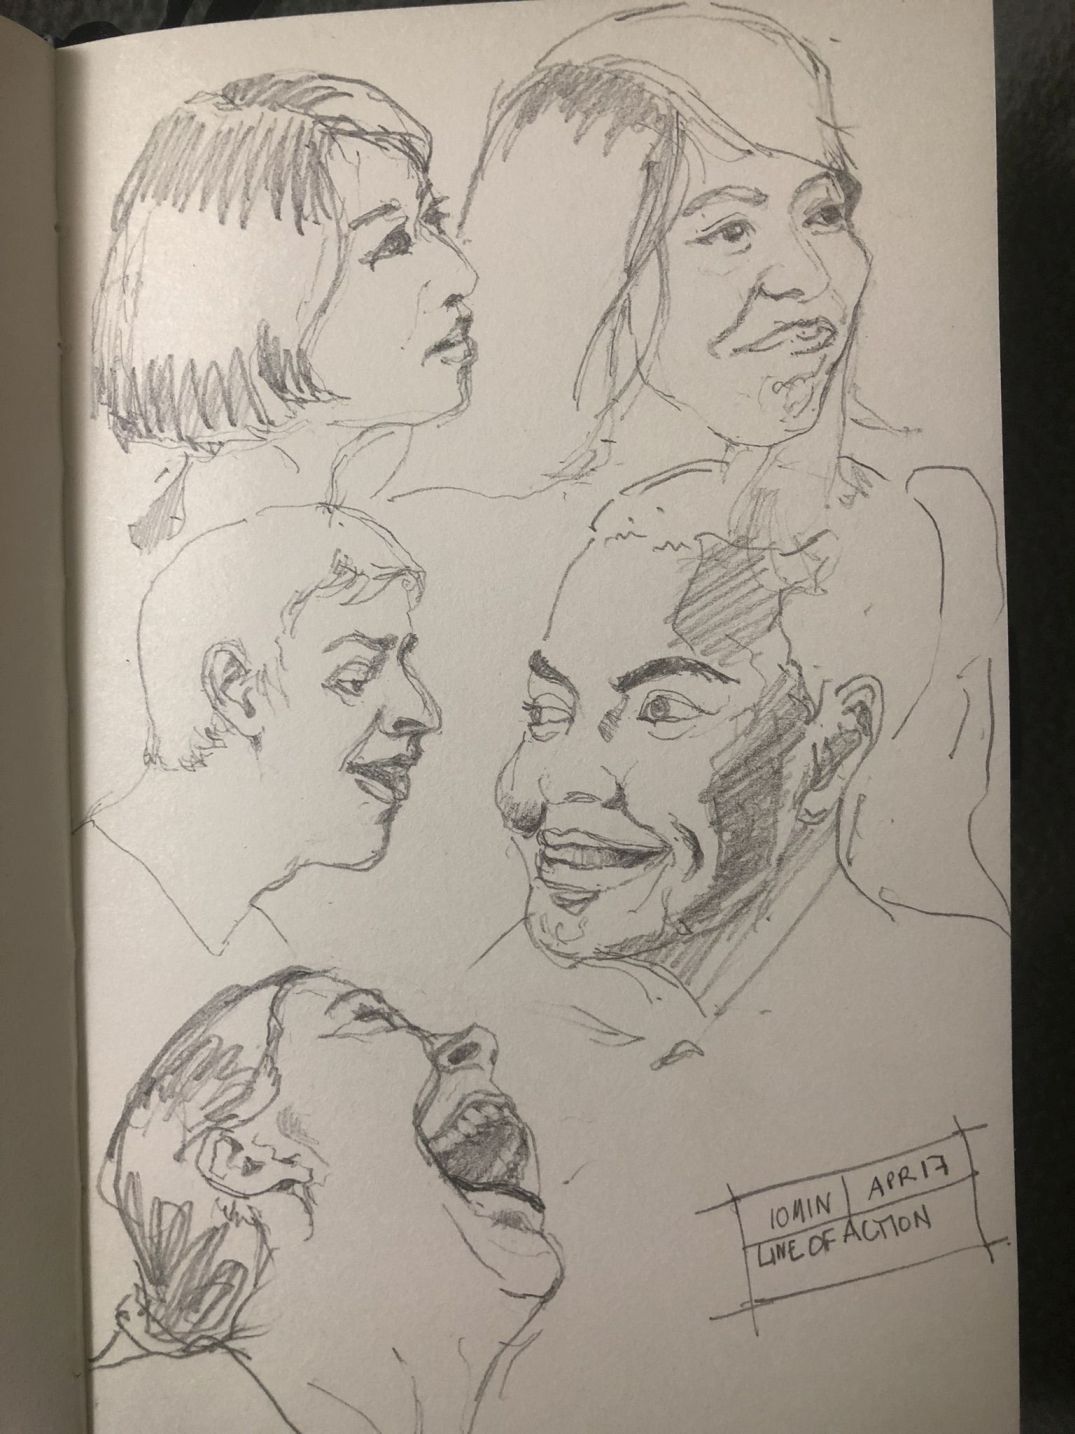 10MIN | APR 17
LINE OF ACTION